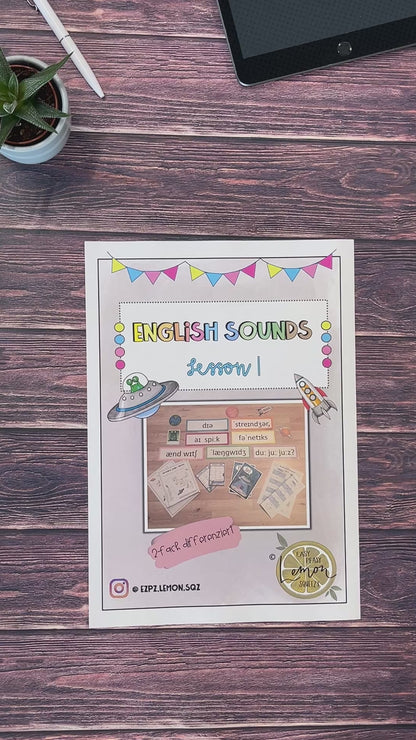 ENGLISH SOUNDS
Lesson 1
dɪə
streɪndʒər,
aɪ spiːk
fəˈnetɪks
ænd wɪtʃ
ˈlæŋgwɪdʒ
duː juː juːz?
2-fach differenziert
©
EASY
PEASY
Lemon
SQUEEZY
@ EZPZ.LEMON.SQZ